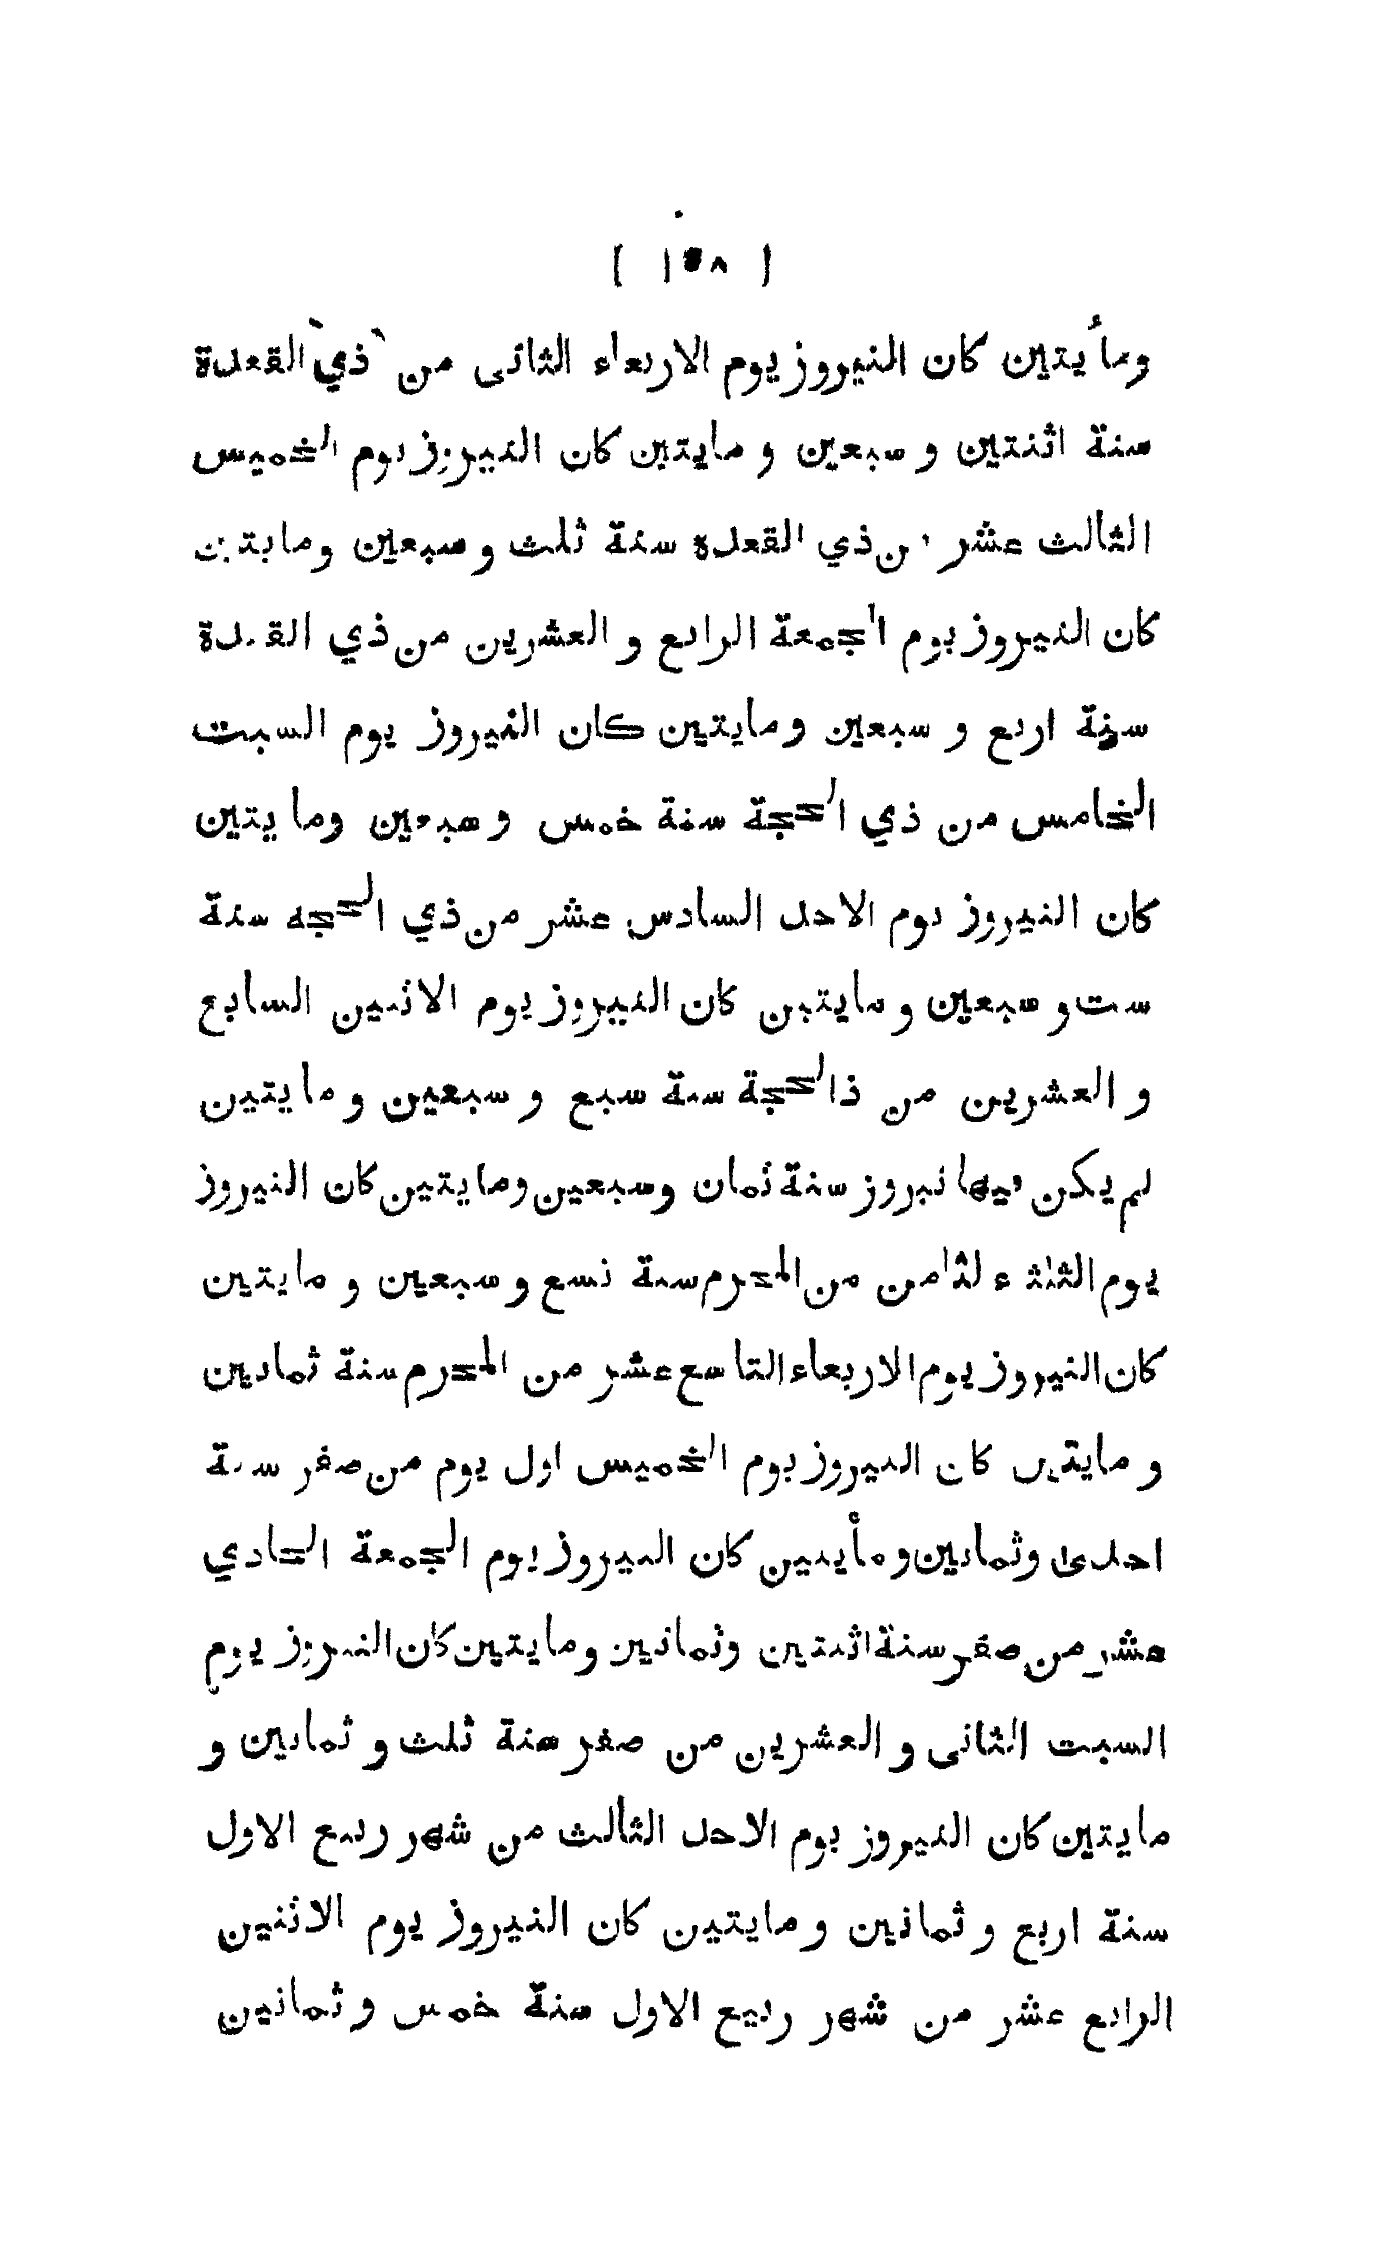 ( ١٥٨ )
ومأيتين كان النيروز يوم الاربعاء الثانى من ذي القعدة
سنة اثنتين و سبعين و مايتين كان النيروز يوم الخميس
الثالث عشر من ذي القعدة سنة ثلث و سبعين ومايتين
كان النيروز يوم الجمعة الرابع و العشرين من ذي القعدة
سنة اربع و سبعين ومايتين كان النيروز يوم السبت
الخامس من ذي الحجة سنة خمس وسبعين ومايتين
كان النيروز يوم الاحد السادس عشر من ذي الحجه سنة
ست و سبعين و مايتين كان النيروز يوم الاثنين السابع
و العشرين من ذالحجة سنة سبع و سبعين و مايتين
لم يكن فيها نيروز سنة ثمان وسبعين ومايتين كان النيروز
يوم الثلثاء لثامن من المحرم سنة تسع و سبعين و مايتين
كان النيروز يوم الاربعاء التاسع عشر من المحرم سنة ثمانين
و مايتين كان النيروز يوم الخميس اول يوم من صفر سنة
احدى وثمانين ومأيتين كان النيروز يوم الجمعة الحادي
عشر من صفر سنة اثنتين وثمانين ومايتين كان النيروز يوم
السبت الثانى و العشرين من صفر سنة ثلث و ثمانين و
مايتين كان النيروز يوم الاحد الثالث من شهر ربيع الاول
سنة اربع و ثمانين ومايتين كان النيروز يوم الاثنين
الرابع عشر من شهر ربيع الاول سنة خمس و ثمانين